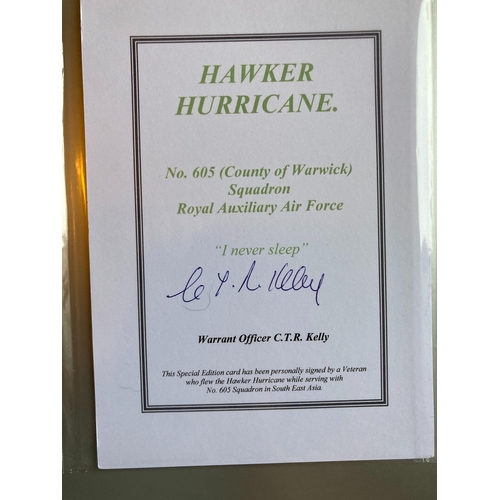 HAWKER
HURRICANE.
No. 605 (County of Warwick)
Squadron
Royal Auxiliary Air Force
"I never sleep"
C.T.R. Kelly
Warrant Officer C.T.R. Kelly
This Special Edition card has been personally signed by a Veteran
who flew the Hawker Hurricane while serving with
No. 605 Squadron in South East Asia.